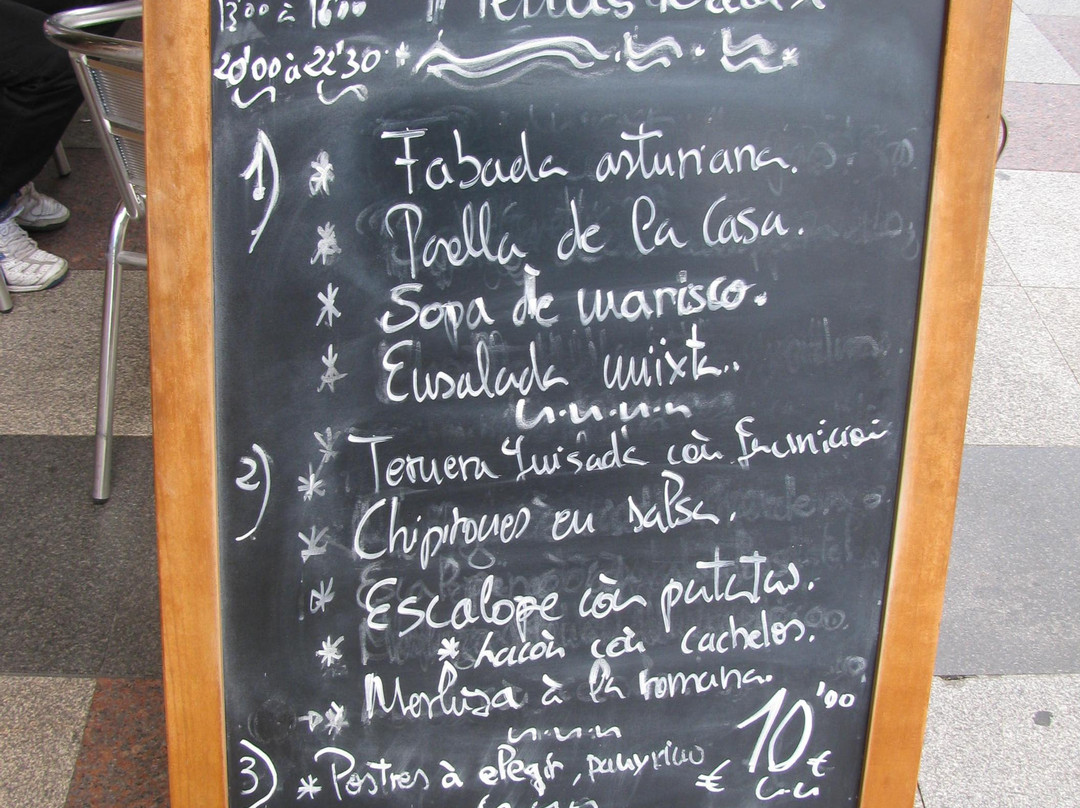 13'00 à 16'00
20'00 à 22'30
1) * Fabada asturiana.
* Paella de la Casa.
* Sopa de marisco.
* Ensalada mixta..
2) * Ternera guisada còn
* Chipirones en salsa.
* Escalope còn patatas.
* * lacòn còn cachelos.
* Merluza à la romana.
10'00 €
3) * Postres à elegir, pan y vino €